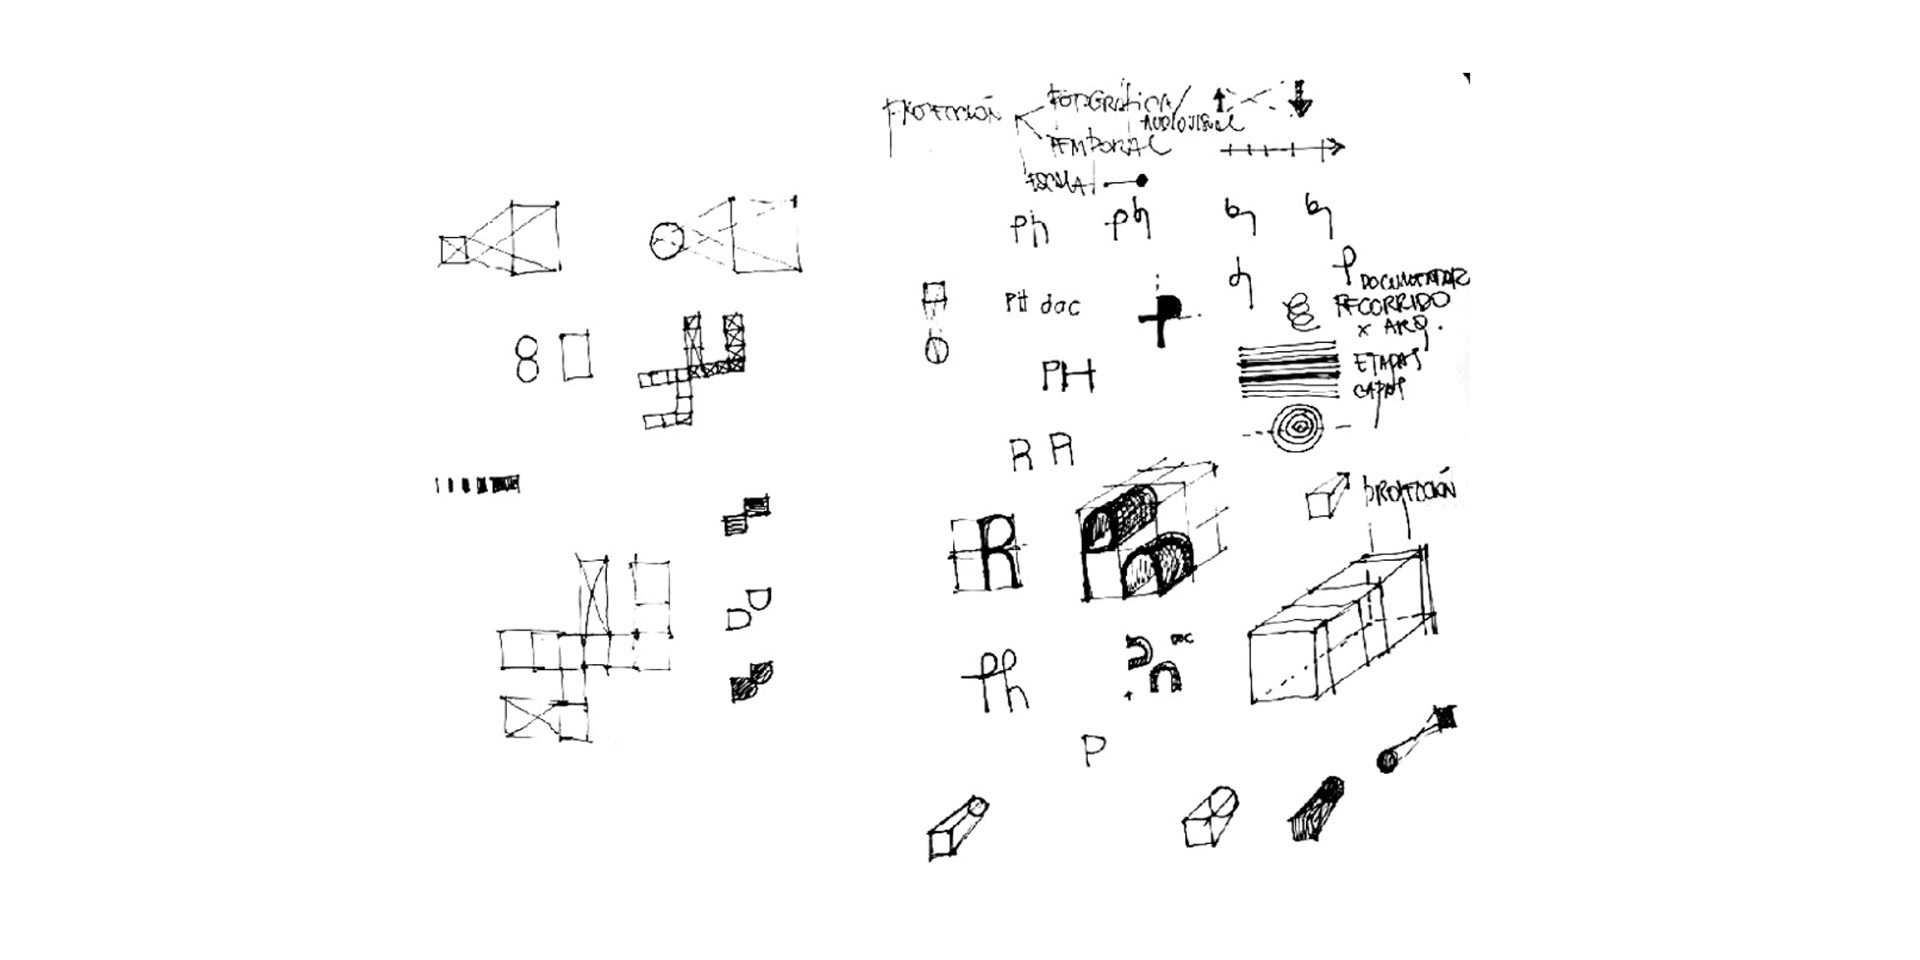 PROYECCIÓN
FOTOGRÁFICA/
AUDIOVISUAL
TEMPORAL
ESCALA
Ph ph
PH doc
P DOCUMENTAR
RECORRIDO
x ARQ.
8
PH
ETAPAS
CAPAS
R R
PROYECCIÓN
R
Ph
DOC
P